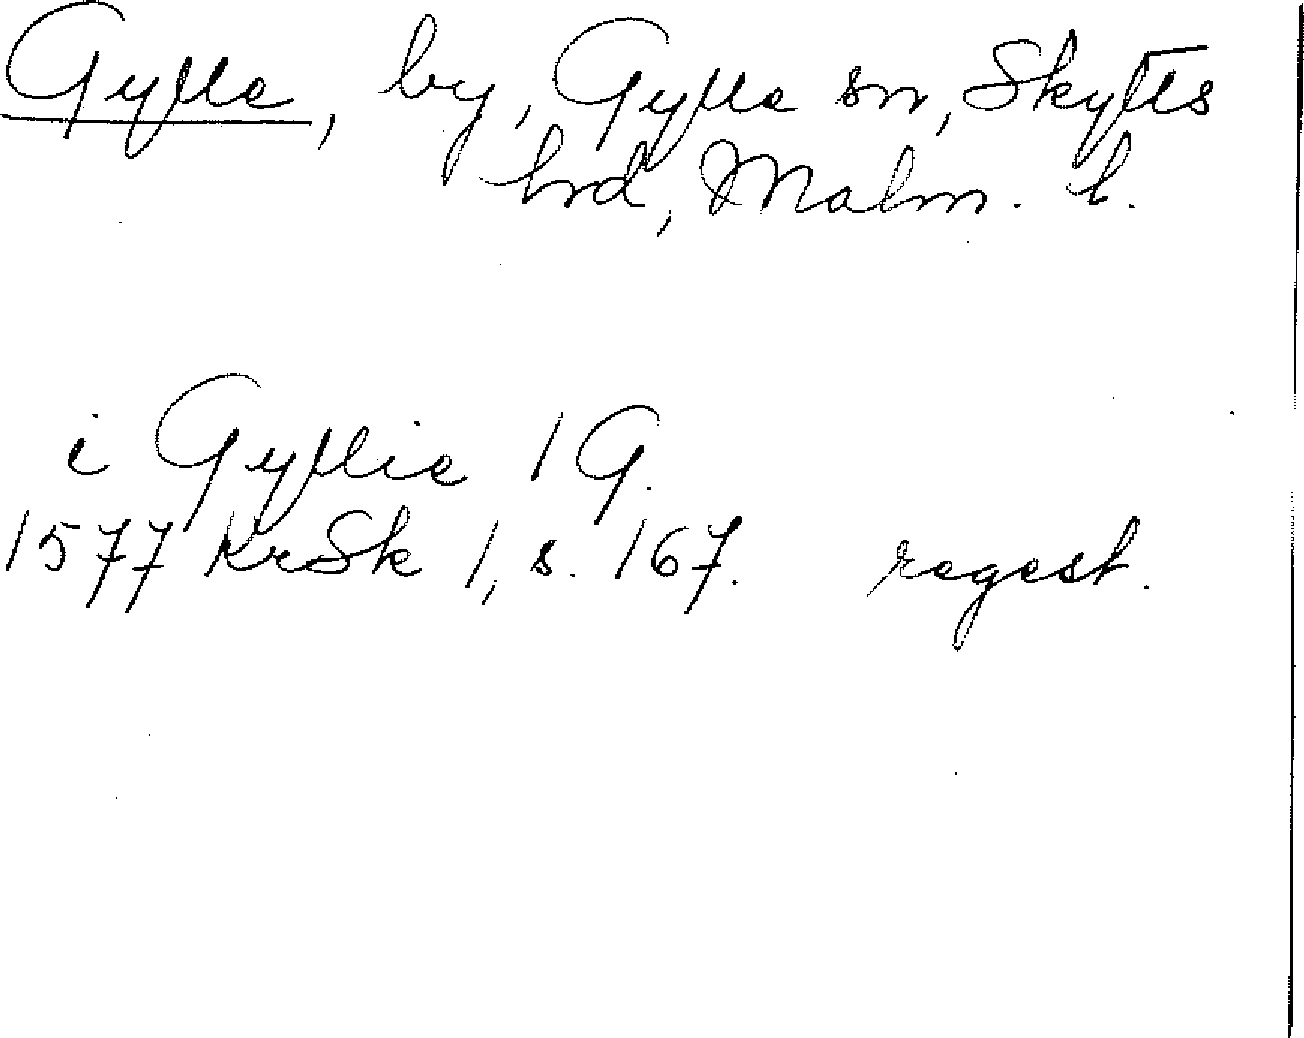 Gylle, by, Gylle sn, Skytts
hrd, Malm. l.
i Gyllie 1 G.
1577 KrSk 1, s. 167. regest.